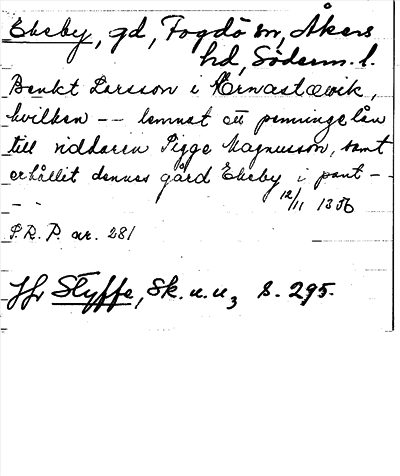 Ekeby, gd, Fogdö sn, Åkers
hd, Söderm. l.
Benkt Larsson i
hvilken -- lemnat ett penningelån
till riddaren Pigge Magnusson, samt
erhållet dennes gård Ekeby i pant -
- -
12/11 1356
S. R. P. nr. 281
Jfr Styffe, Sk. u. u, s. 295.